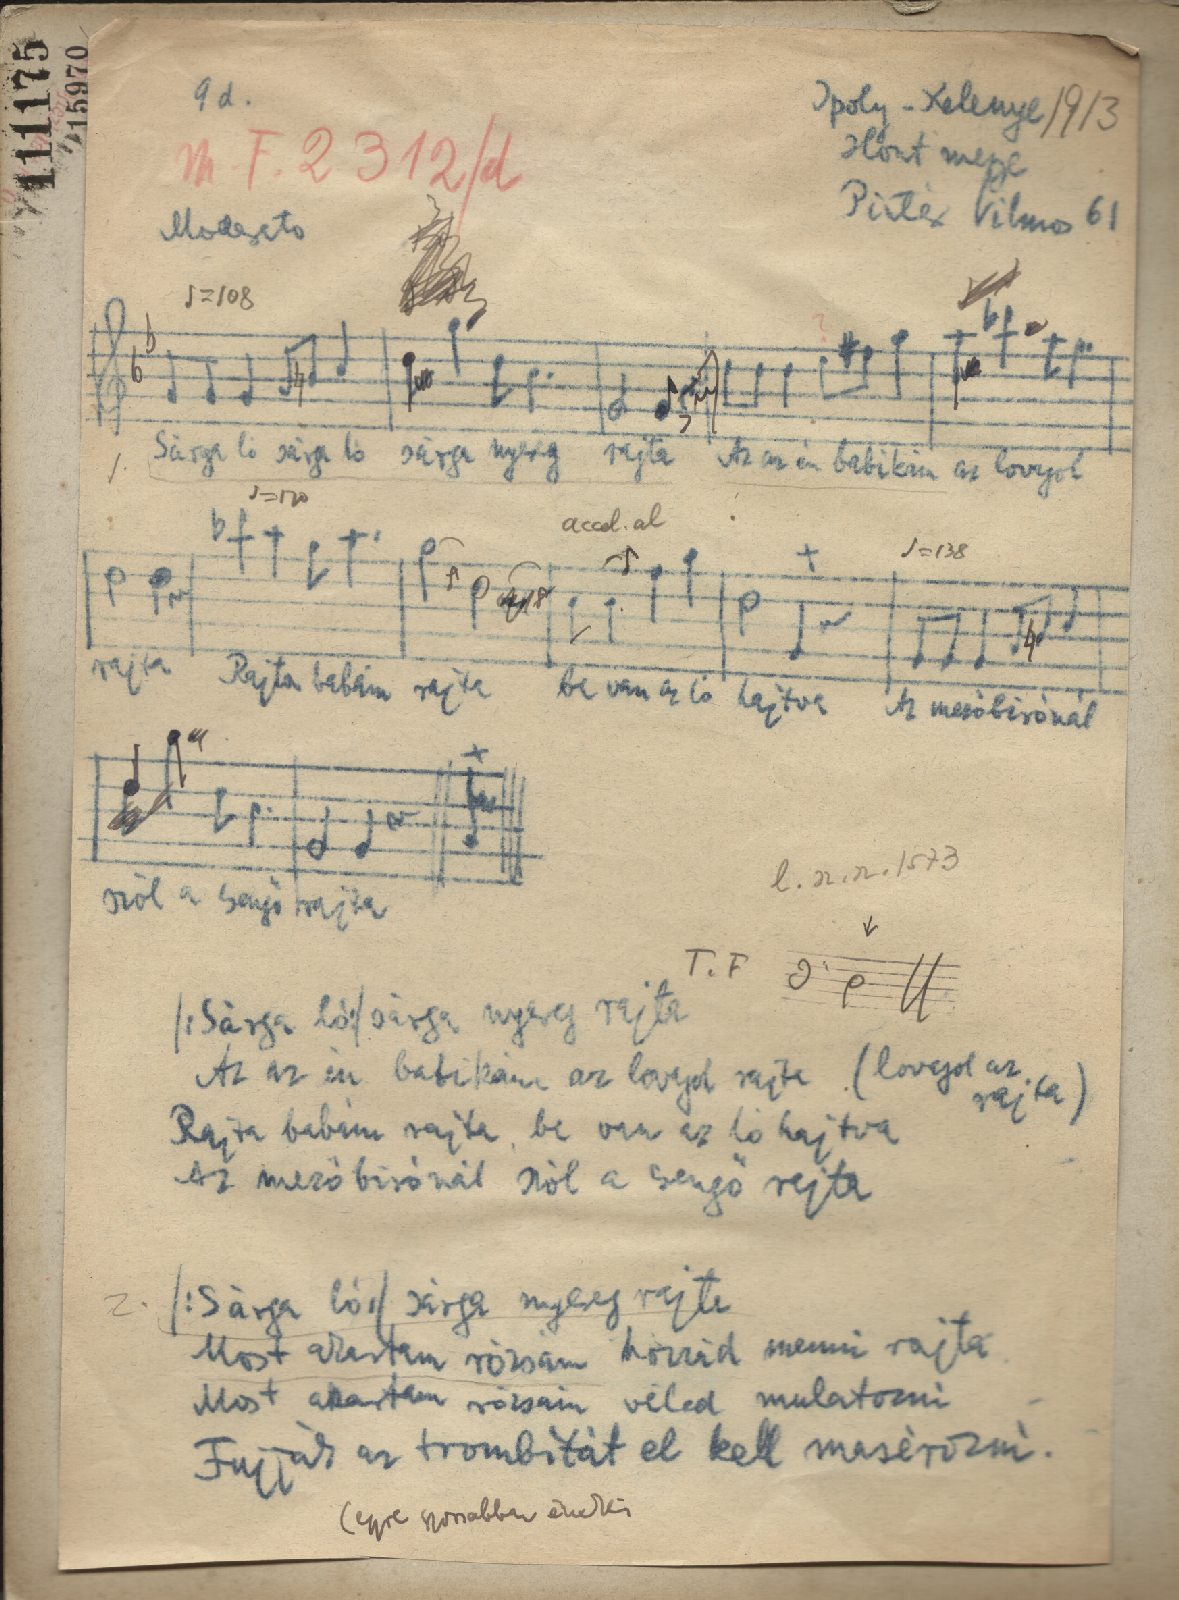 11175
15970
9d.
M.F. 2312/d
Ipoly-Kelenye 1913
Hont megye
Pintér Vilmos 61
Moderato
♩=108
1. Sárga ló sárga ló sárga nyereg rajta Az az én babikám az lovagol
♩=120
accel. al
♩=138
rajta Rajta babám rajta be van az ló hajtva Az mezőbirónál
szól a sengő rajta
l. sz. sz. 1573
T.F
/:Sárga ló:/ sárga nyereg rajta
Az az én babikám az lovagol rajta (lovagol az
rajta)
Rajta babám rajta, be van az ló hajtva
Az mezőbirónál szól a sengő rajta
2. /:Sárga ló:/ sárga nyereg rajta
Most akartam rózsám hozzád menni rajta
Most akartam rózsám véled mulatozni
Fujják az trombitát el kell masérozni.
(egyre gyorsabban énekli